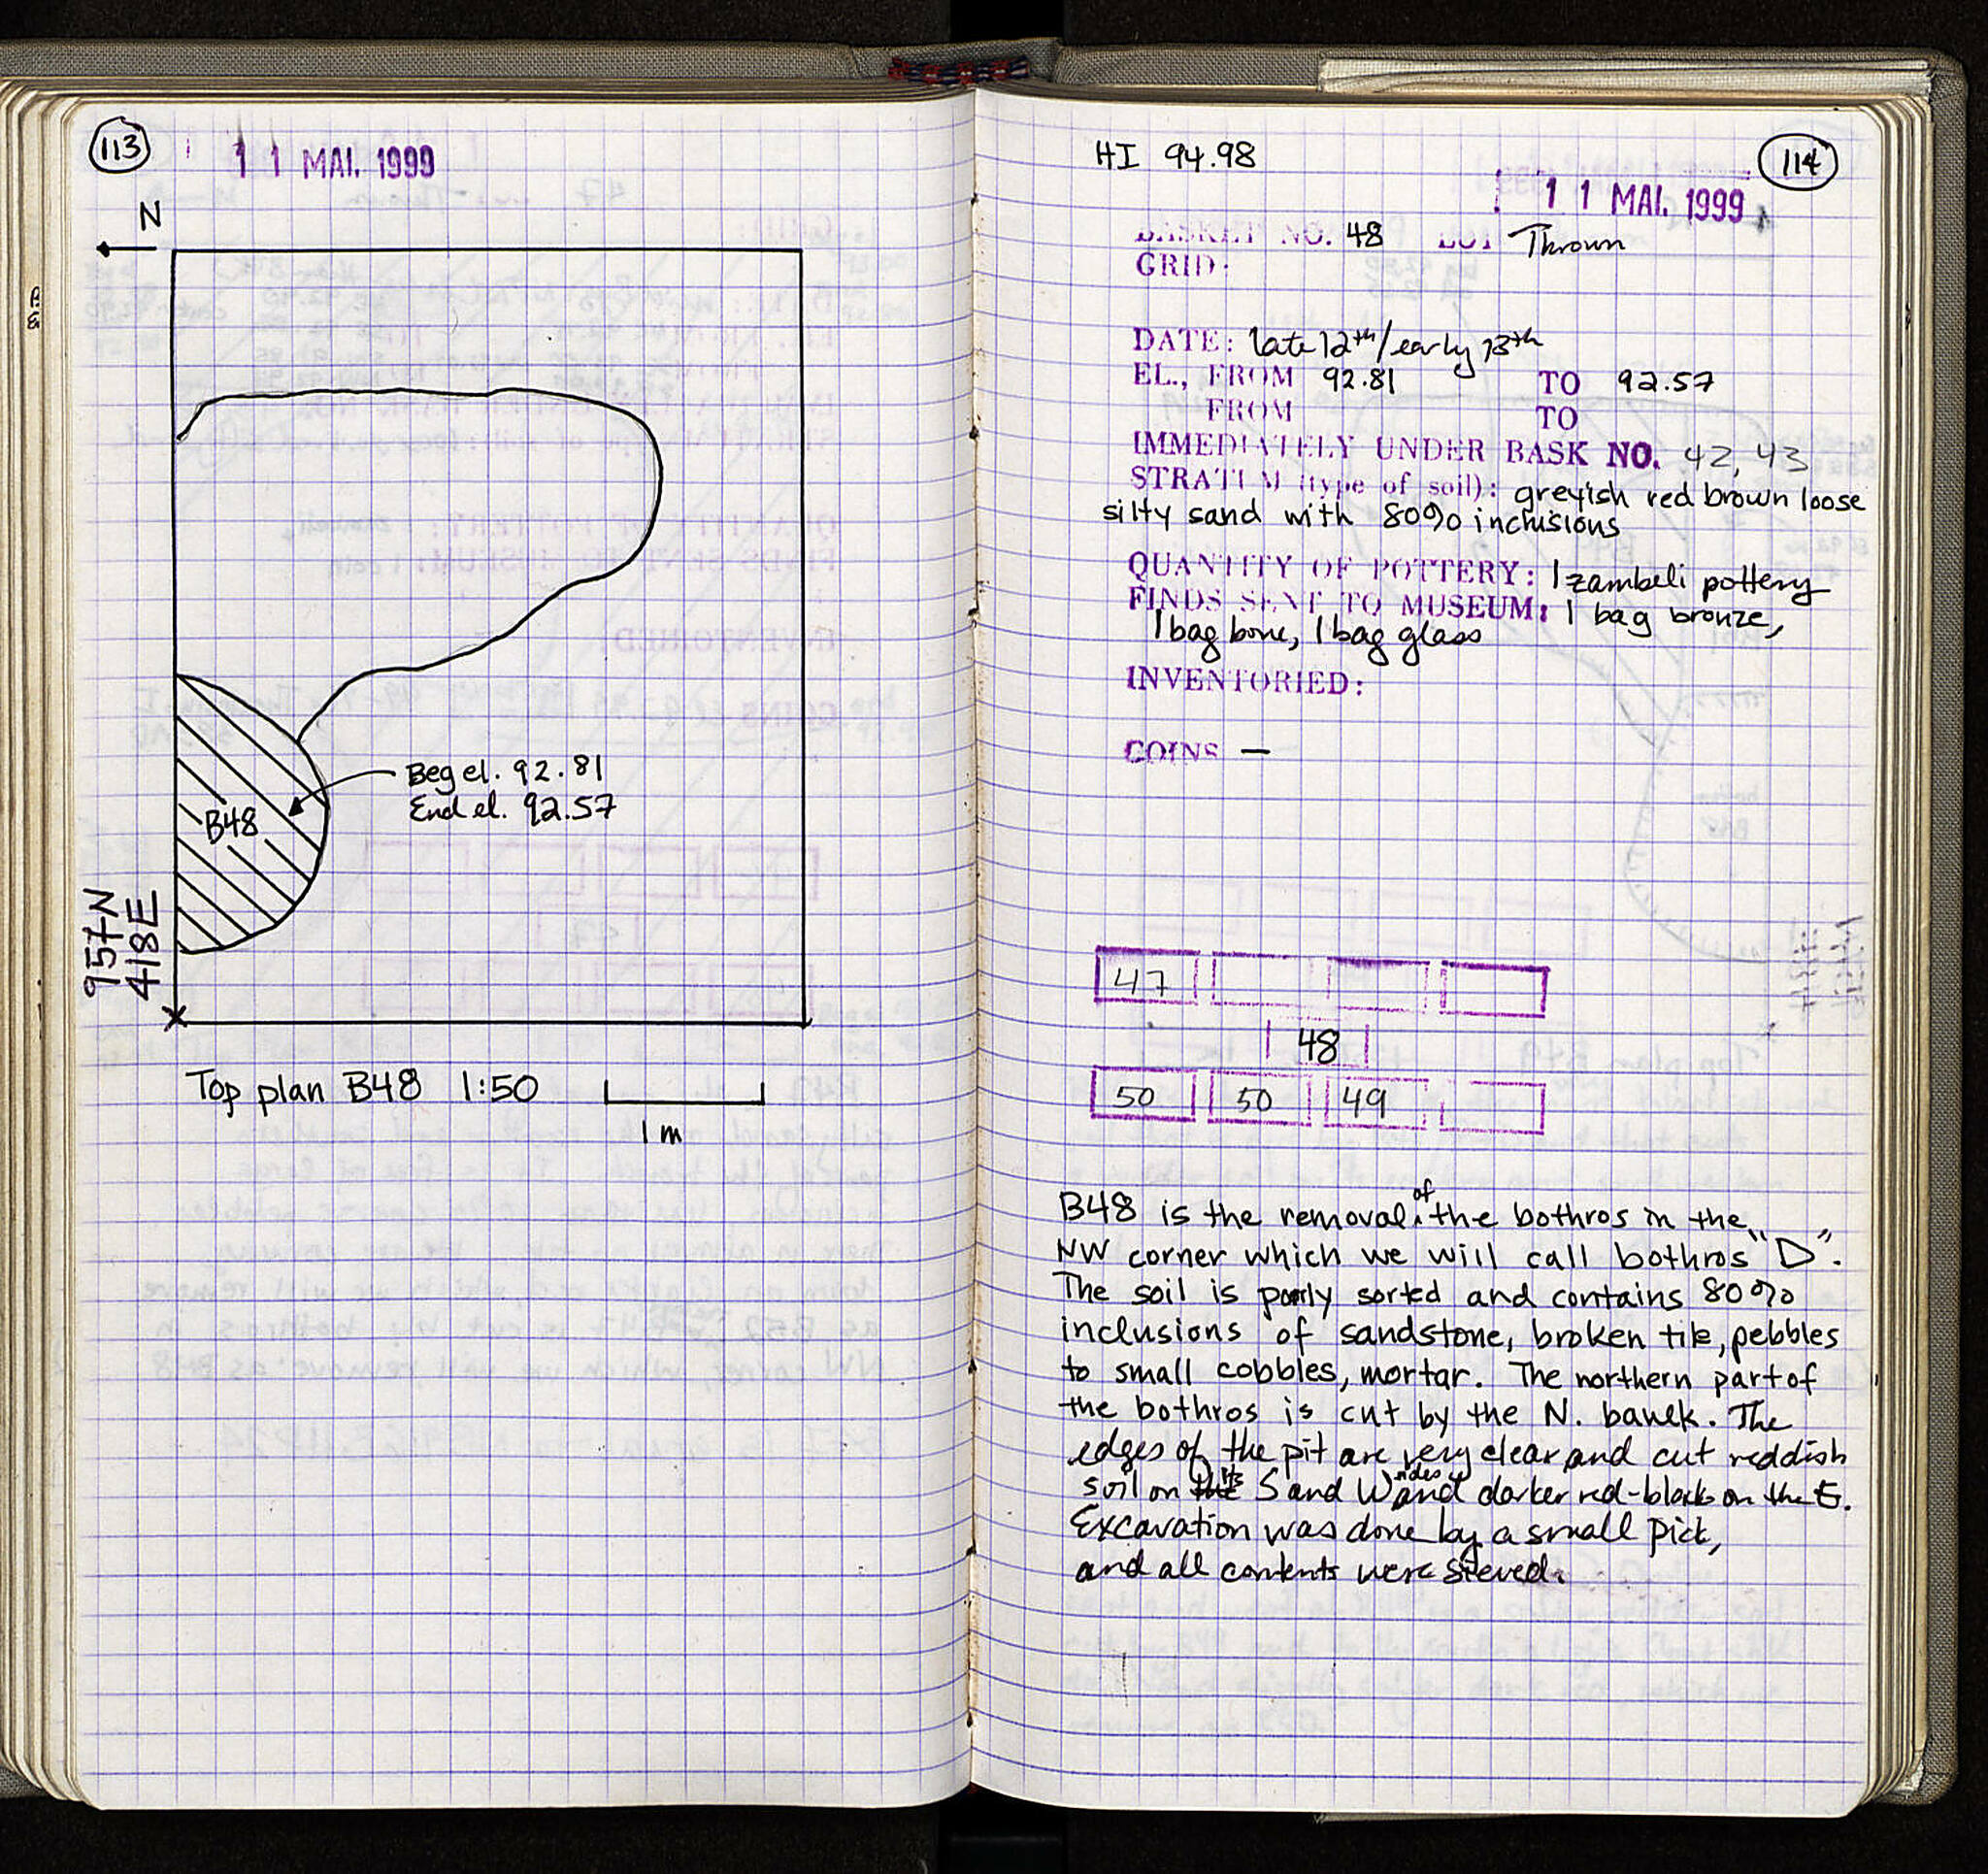 113
1 1 MAI. 1999
N
B48
Beg el. 92.81
End el. 92.57
957N
418E
Top plan B48 1:50
1 m
HI 94.98
114
1 1 MAI. 1999
BASKET NO. 48 LOT Thrown
GRID:
DATE: late 12th/early 13th
EL., FROM 92.81 TO 92.57
FROM TO
IMMEDIATELY UNDER BASK NO. 42, 43
STRATUM (type of soil): greyish red brown loose
silty sand with 80% inclusions
QUANTITY OF POTTERY: 1 zambeli pottery
FINDS SENT TO MUSEUM: 1 bag bronze,
1 bag bone, 1 bag glass
INVENTORIED:
COINS —
47
48
50 50 49
B48 is the removal of the bothros in the
NW corner which we will call bothros "D".
The soil is poorly sorted and contains 80%
inclusions of sandstone, broken tile, pebbles
to small cobbles, mortar. The northern part of
the bothros is cut by the N. baulk. The
edges of the pit are very clear and cut reddish
soil on its S and W sides and darker red-black on the E.
Excavation was done by a small pick,
and all contents were sieved.